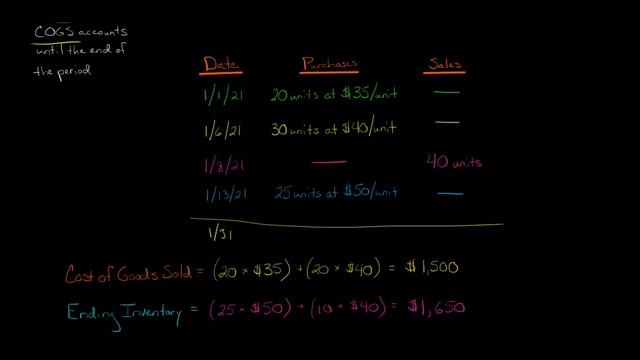 COGS accounts
until the end of
the period
Date Purchases Sales
1/1/21 20 units at $35/unit —
1/6/21 30 units at $40/unit —
1/8/21 — 40 units
1/13/21 25 units at $50/unit —
1/31
Cost of Goods Sold = (20 × $35) + (20 × $40) = $1,500
Ending Inventory = (25 × $50) + (10 × $40) = $1,650